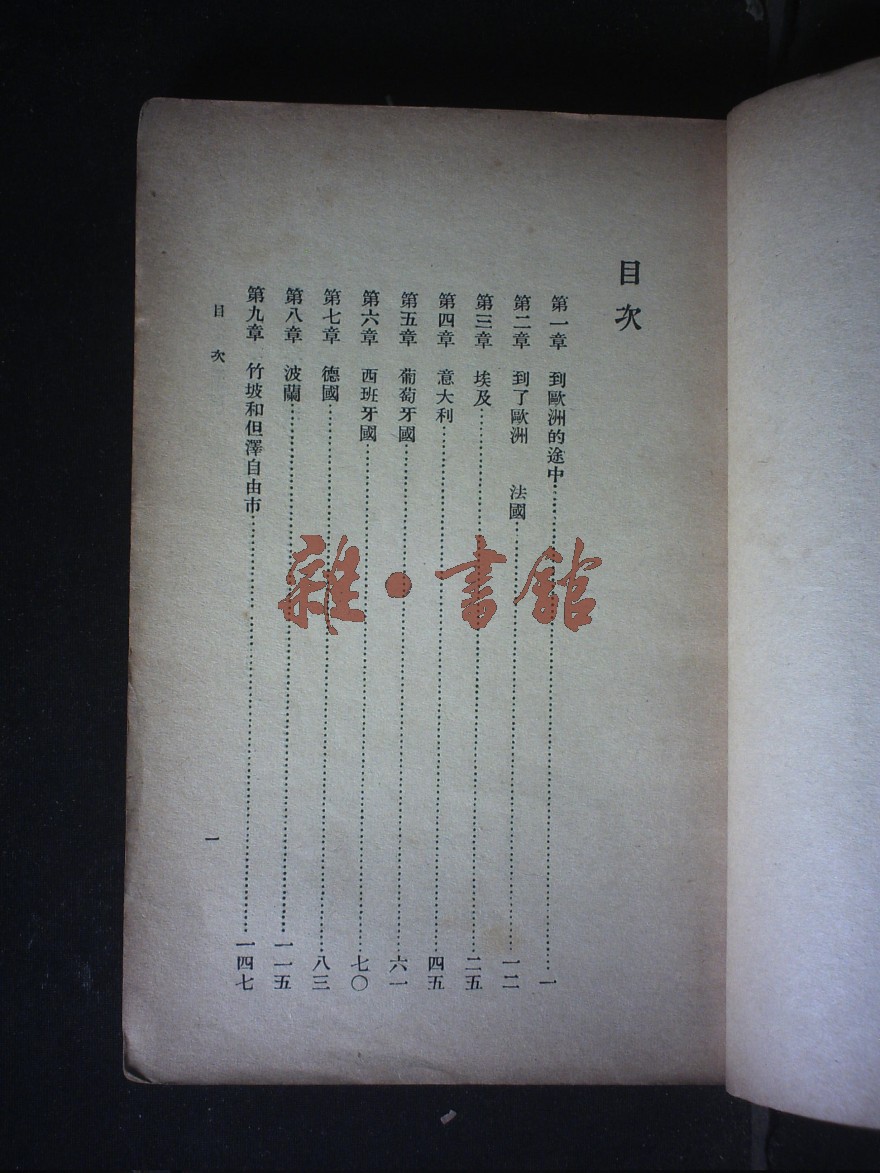 目次
第一章 到歐洲的途中……一
第二章 到了歐洲 法國……一二
第三章 埃及……二五
第四章 意大利……四五
第五章 葡萄牙國……六一
第六章 西班牙國……七〇
第七章 德國……八三
第八章 波蘭……一一五
第九章 竹坡和但澤自由市……一四七
目次 一
雜·書館